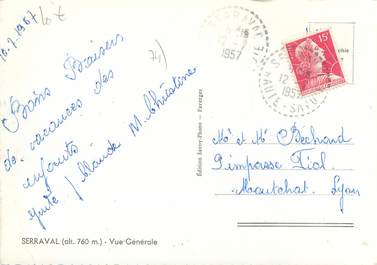 16.7.1957
10 F
74)
Bons Baisers
de vacances des
enfants
Claude M. Christine
SERRAVAL
1957
15F
12
1957
HAUTE-SAVOIE
Mr et Me Bechoud
9 impasse Fiol
Montchat. Lyon
Edition Savoy-Photo - Faverges
SERRAVAL (alt. 760 m.) - Vue Générale